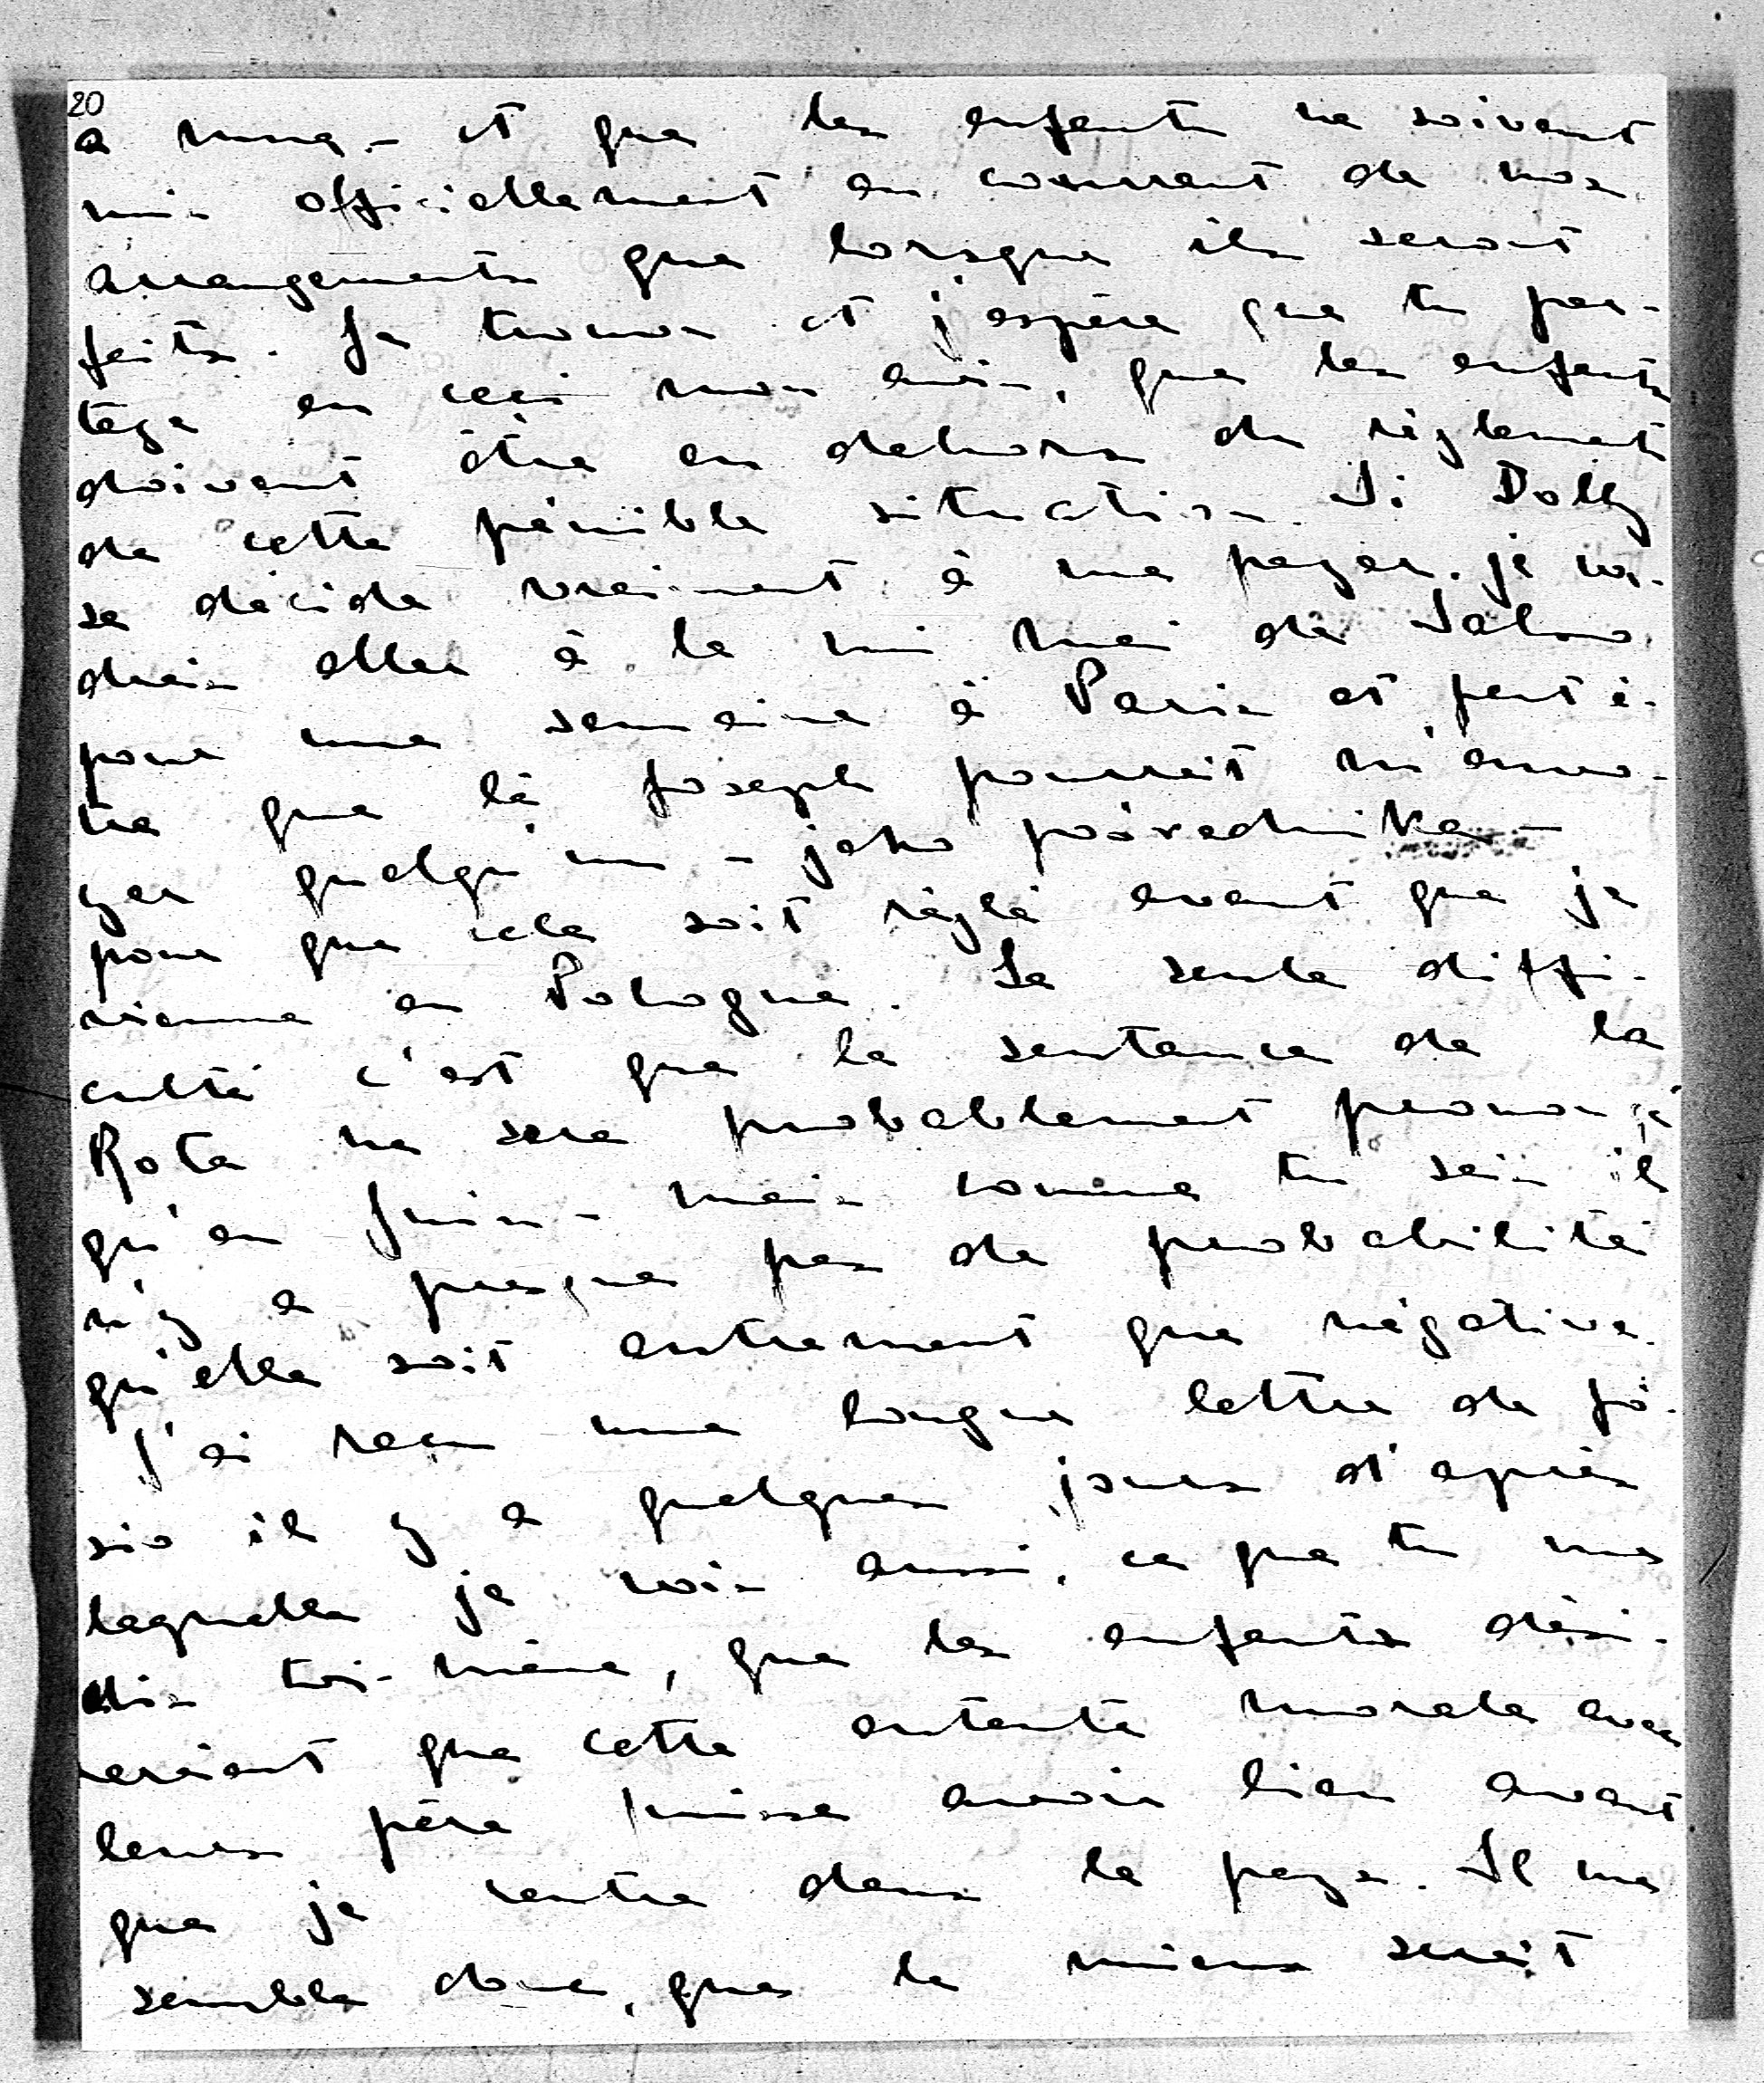 20
a nous - et que les enfants ne soivent
mis officiellement au courrant de nos
arrangements que lorsque ils seront
faits. Je trouve et j'espère que tu par-
tage en ceci mon avis, que les enfants
doivent être en dehors du règlement
de cette pénible situation. Si Dolly
se décide vraiment à me payer. je vou-
drais aller à la mi mai de Salno
pour une semaine à Paris et peut ê-
tre que là Joseph pourrait m'envo-
yer quelqu'un - jako pośrednika -
pour que cela soit réglé avant que je
vienne en Pologne. La seule diffi-
culté c'est que la sentance de la
Rota ne sera probablement prononcé
qu'en Juin - mais comme tu sais il
n'y a presque pas de probabilité
qu'elle soit autrement que négative.
J'ai reçu une longue lettre de Jó-
sio il y a quelques jours d'après
laquelle je vois aussi, ce que tu me
dis toi-même, que les enfants dési-
reraient que cette entente morale avec
leurs père puisse avoir lieu avant
que je rentre dans le pays. Il me
semble donc, que le mieux serait